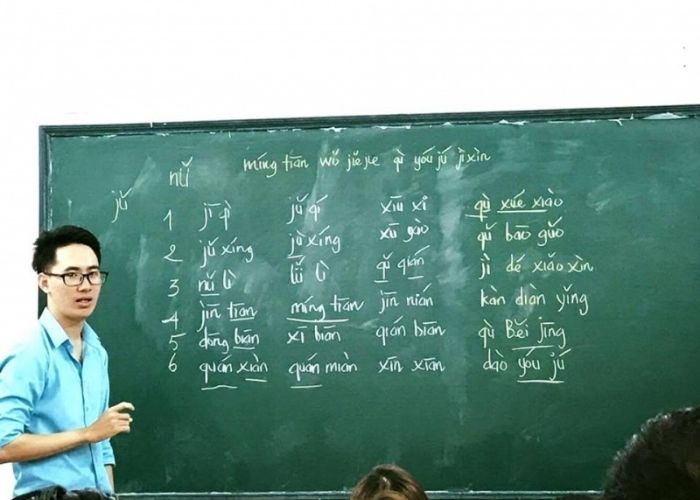 míng tiān wǒ jiějie qù yóu jú jì xìn
nǔ
jǔ
1 jī qì jǔ qí xiū xi qù xué xiào
2 jǔ xíng jù xíng xū gào qǔ bāo guǒ
3 nǔ lì lǜ lì qǔ qián jì dé xiǎo xīn
4 jīn tiān míng tiān jīn nián kàn diàn yǐng
5 dōng biān xī biān qián biān qù Běi jīng
6 quán xiàn quán miàn xīn xiān dào yóu jú